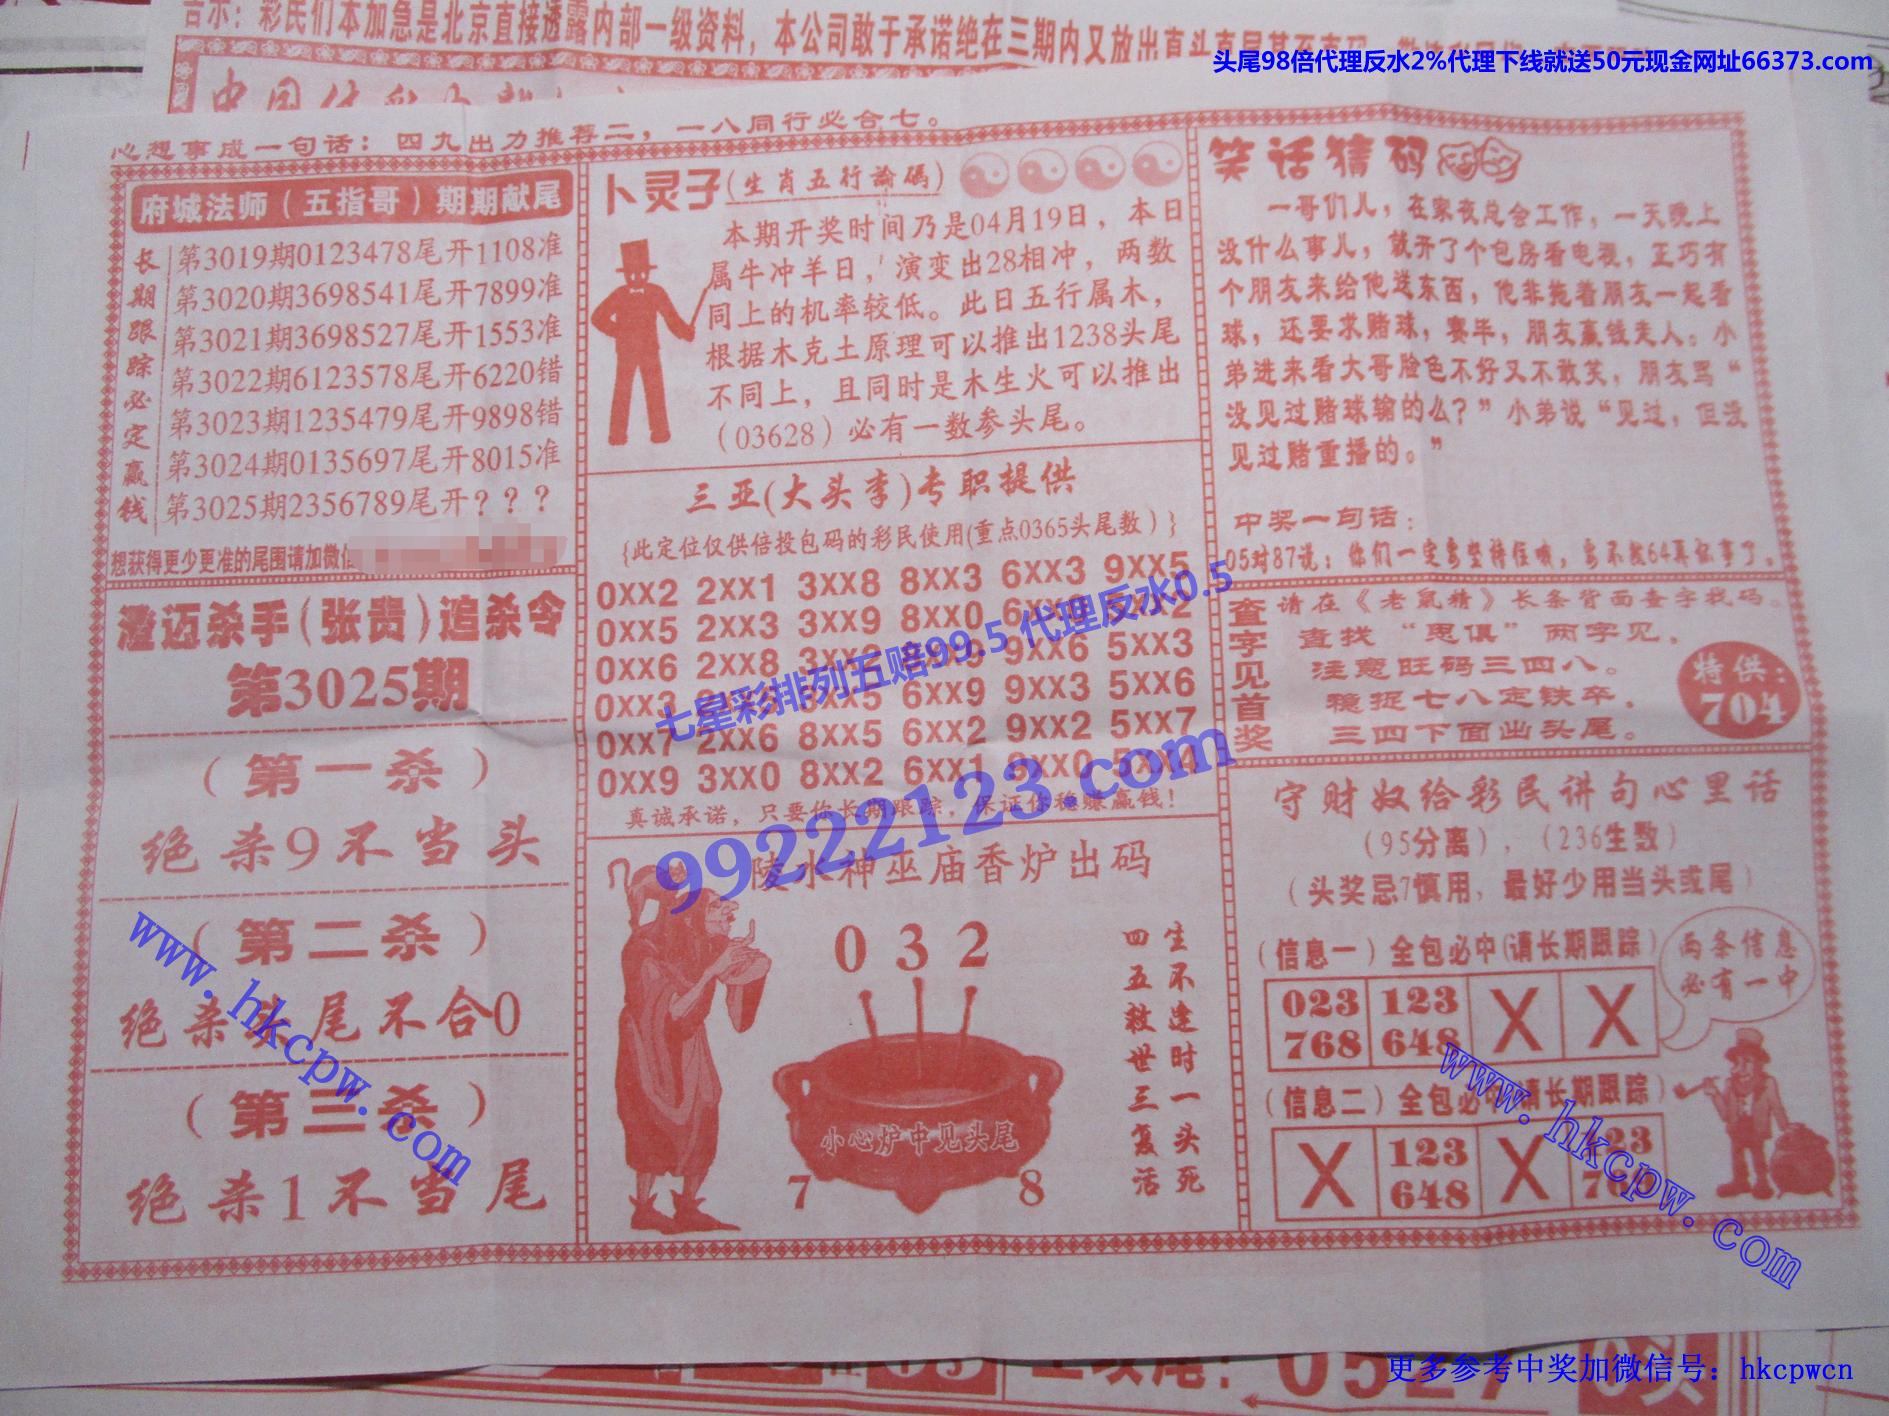 告示：彩民们本加急是北京直接透露内部一级资料，本公司敢于承诺绝在三期内又放出
头尾98倍代理反水2%代理下线就送50元现金网址66373.com
心想事成一句话：四九出力推荐二，一八同行必合七。
府城法师（五指哥）期期献尾
长期跟踪必定赢钱
第3019期0123478尾开1108准
第3020期3698541尾开7899准
第3021期3698527尾开1553准
第3022期6123578尾开6220错
第3023期1235479尾开9898错
第3024期0135697尾开8015准
第3025期2356789尾开？？？
想获得更少更准的尾围请加微信
澄迈杀手（张贵）追杀令
第3025期
（第一杀）
绝杀9不当头
（第二杀）
绝杀头尾不合0
（第三杀）
绝杀1不当尾
卜灵子（生肖五行論碼）
本期开奖时间乃是04月19日，本日
属牛冲羊日，演变出28相冲，两数
同上的机率较低。此日五行属木，
根据木克土原理可以推出1238头尾
不同上，且同时是木生火可以推出
（03628）必有一数参头尾。
三亚（大头李）专职提供
{此定位仅供倍投包码的彩民使用（重点0365头尾数）}
0XX2 2XX1 3XX8 8XX3 6XX3 9XX5
0XX5 2XX3 3XX9 8XX0
0XX6 2XX8 9XX6 5XX3
0XX3 6XX9 9XX3 5XX6
0XX7 2XX6 8XX5 6XX2 9XX2 5XX7
0XX9 3XX0 8XX2 6XX1 5XX4
真诚承诺，只要你长期跟踪，保证你稳赚赢钱！
七星彩排列五赔99.5 代理反水0.5
99222123.com
陵水神巫庙香炉出码
032
小心炉中见头尾
7
8
生不逢时一头死
四五救世三复活
笑话猜码
一哥们儿，在家夜总会工作，一天晚上
没什么事儿，就开了个包房看电视，正巧有
个朋友来给他送东西，他非拖着朋友一起看
球，还要求赌球，赛毕，朋友赢钱走人。小
弟进来看大哥脸色不好又不敢笑，朋友骂“
没见过赌球输的么？”小弟说“见过，但没
见过赌重播的。”
中奖一句话：
05对87说：你们一定多坚持住哦，多不然64真坏事了。
查字见首奖
请在《老鼠精》长条背面查字找码。
查找“思俱”两字见，
注意旺码三四八。
稳捉七八定铁卒，
三四下面出头尾。
特供：
704
守财奴给彩民讲句心里话
（95分离），（236生数）
（头奖忌7慎用，最好少用当头或尾）
（信息一）全包必中（请长期跟踪）
023 123 X X
768 648
两条信息
必有一中
（信息二）全包必中（请长期跟踪）
X 123 X
648
www.hkcpw.com
www.hkcpw.com
更多参考中奖加微信号：hkcpwcn